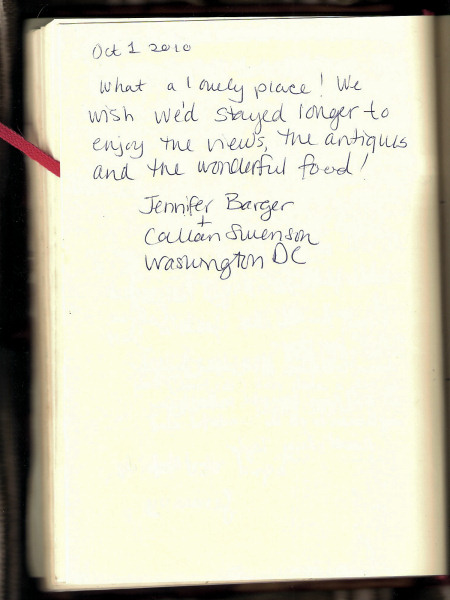 Oct 1 2010
What a lovely place! We
wish we'd stayed longer to
enjoy the views, the antiques
and the wonderful food!
Jennifer Barger
+
Callan Swenson
Washington DC